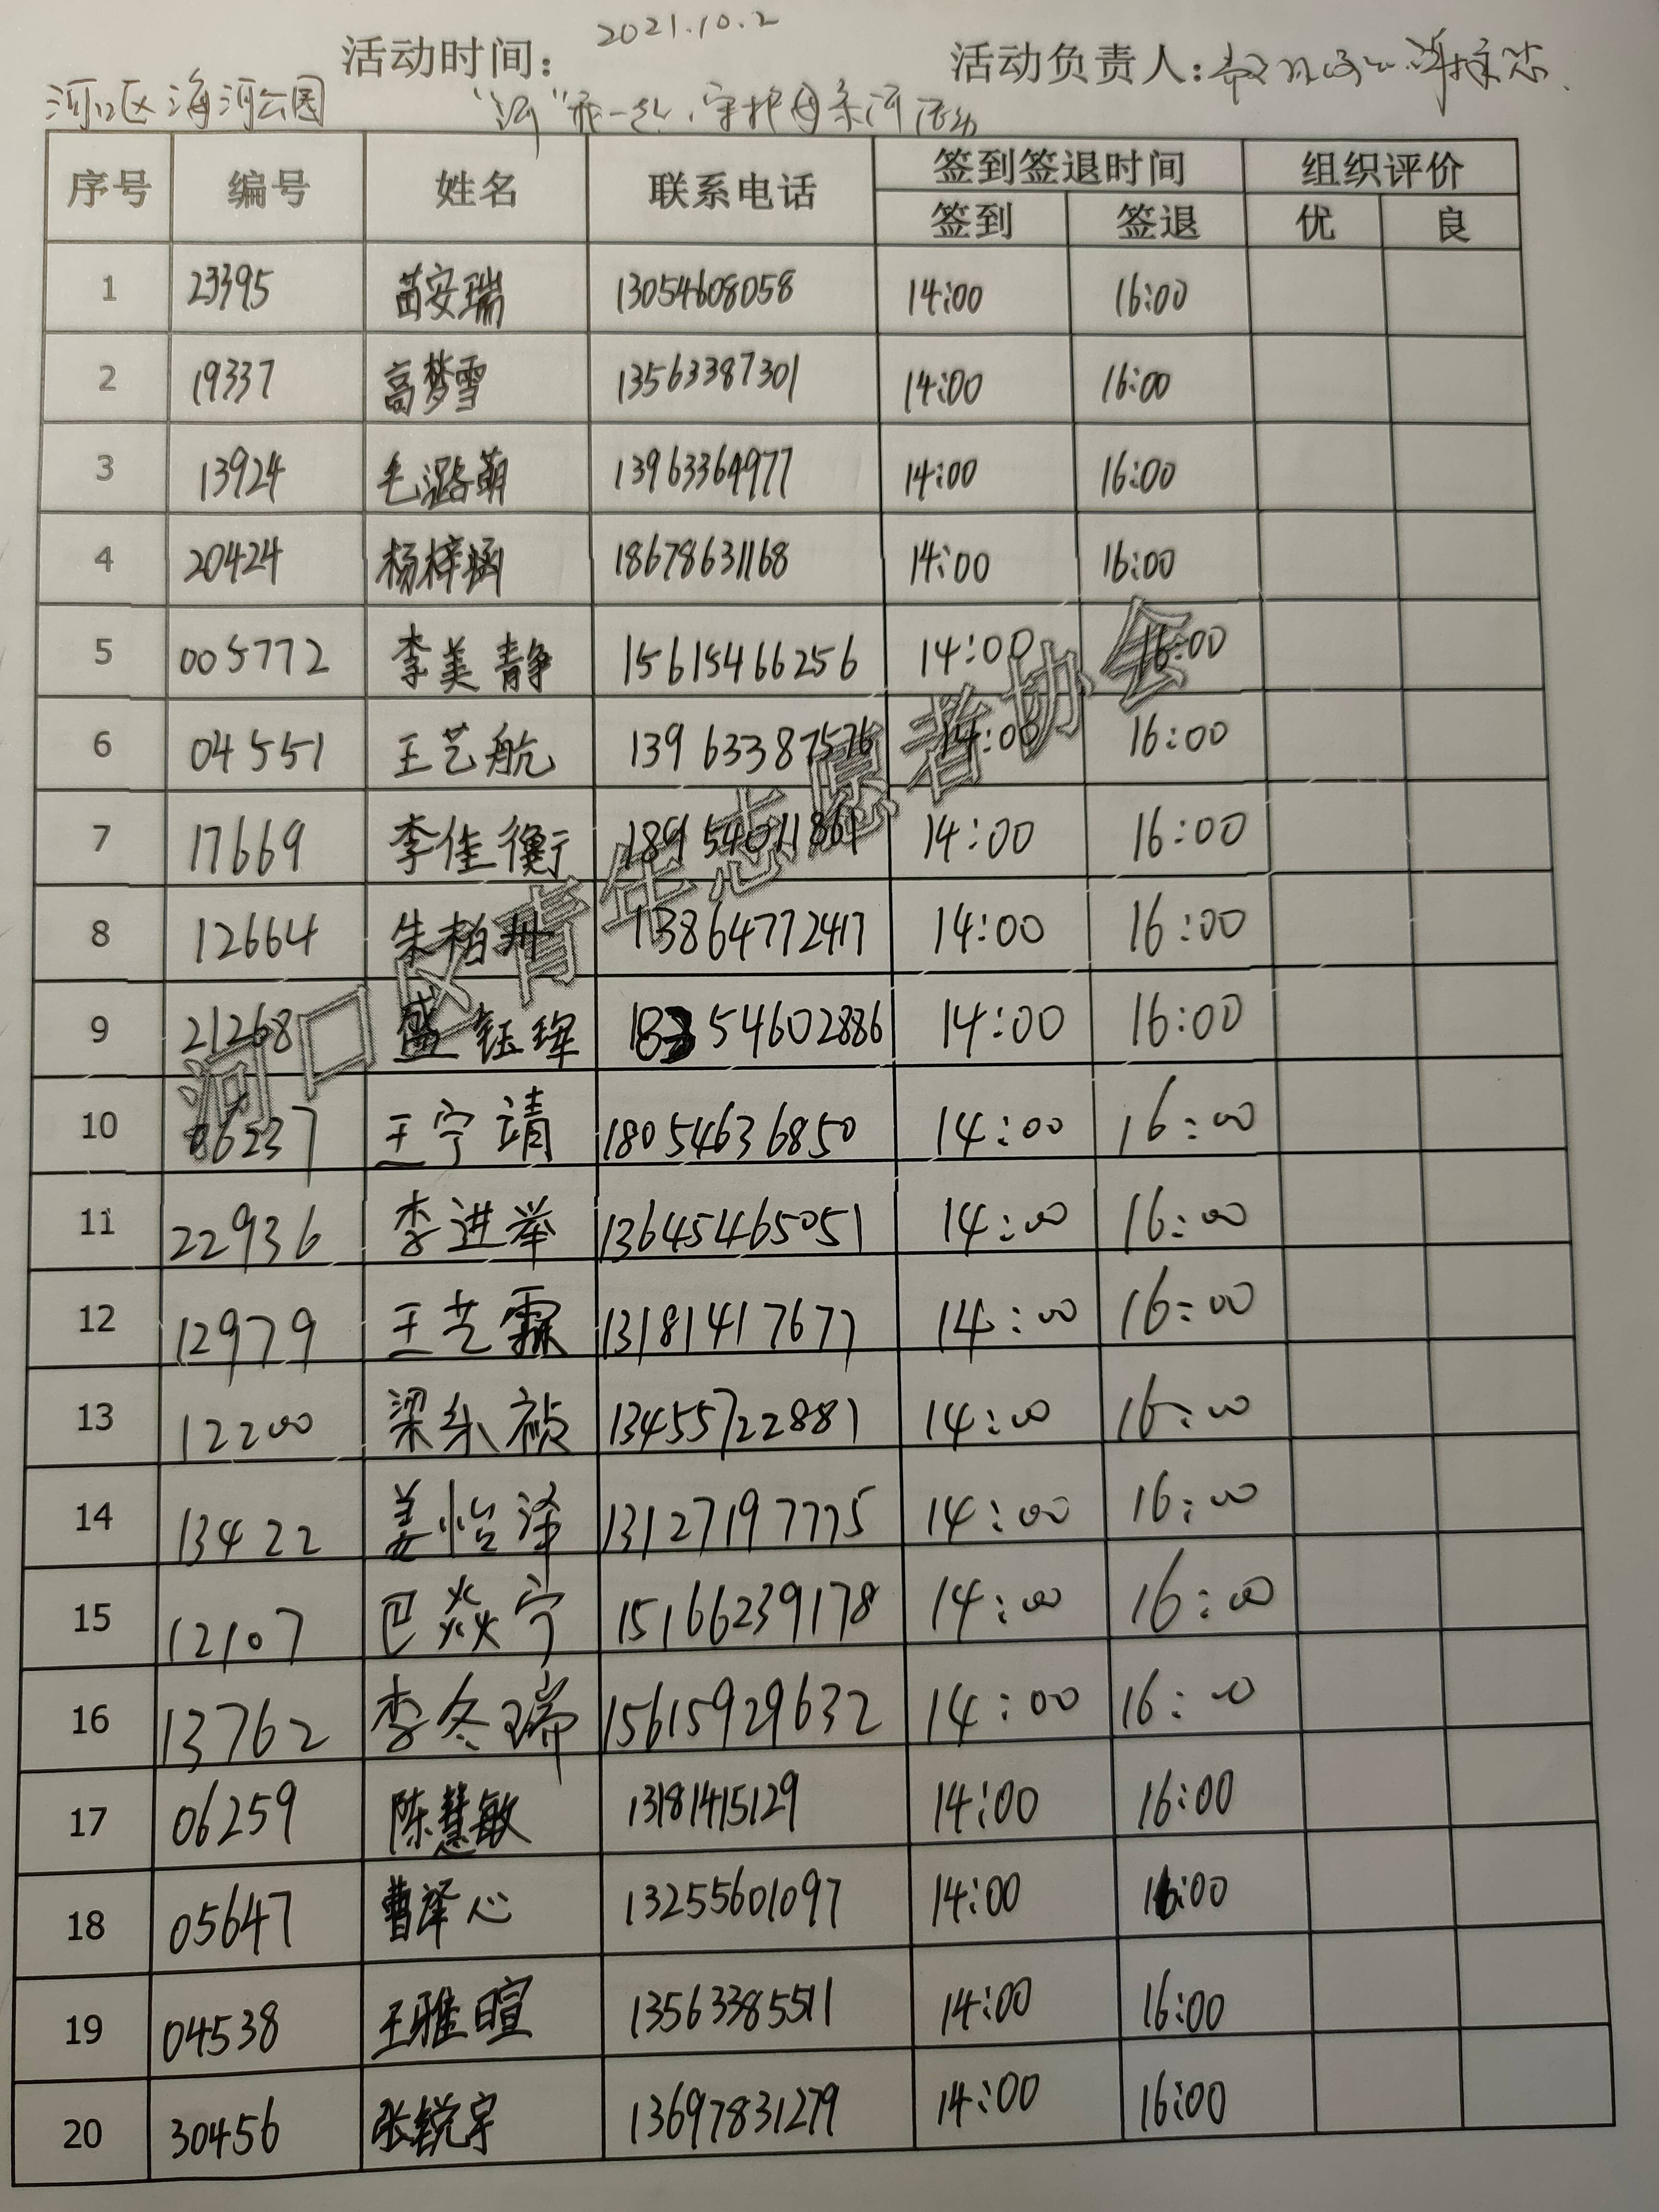 活动时间： 2021.10.2 活动负责人：
河口区海河公园 "河"你一起，守护母亲河活动
序号 编号 姓名 联系电话 签到签退时间 组织评价
签到 签退 优 良
1 23395 苗安瑞 13054608058 14:00 16:00
2 19337 高梦雪 13563387301 14:00 16:00
3 13924 毛潞萌 13963364977 14:00 16:00
4 20424 杨梓涵 18678631168 14:00 16:00
5 005772 李美静 15615466256 14:00 16:00
6 04551 王艺航 13963387576 14:00 16:00
7 17669 李佳衡 18954011861 14:00 16:00
8 12664 朱柏州 13864772417 14:00 16:00
9 21268 盛钰珲 18354602886 14:00 16:00
10 06237 王宁靖 18054636850 14:00 16:00
11 22936 李进举 13645465051 14:00 16:00
12 12979 王艺霖 13181417677 14:00 16:00
13 12200 梁乐祯 13455722881 14:00 16:00
14 13422 姜怡泽 13127197775 14:00 16:00
15 12107 巴焱宁 15166239178 14:00 16:00
16 13762 李冬瑞 15615929632 14:00 16:00
17 06259 陈慧敏 13181415129 14:00 16:00
18 05647 曹泽心 13255601097 14:00 16:00
19 04538 王雅暄 13563385511 14:00 16:00
20 30456 张锐宇 13697831279 14:00 16:00
河口区青年志愿者协会